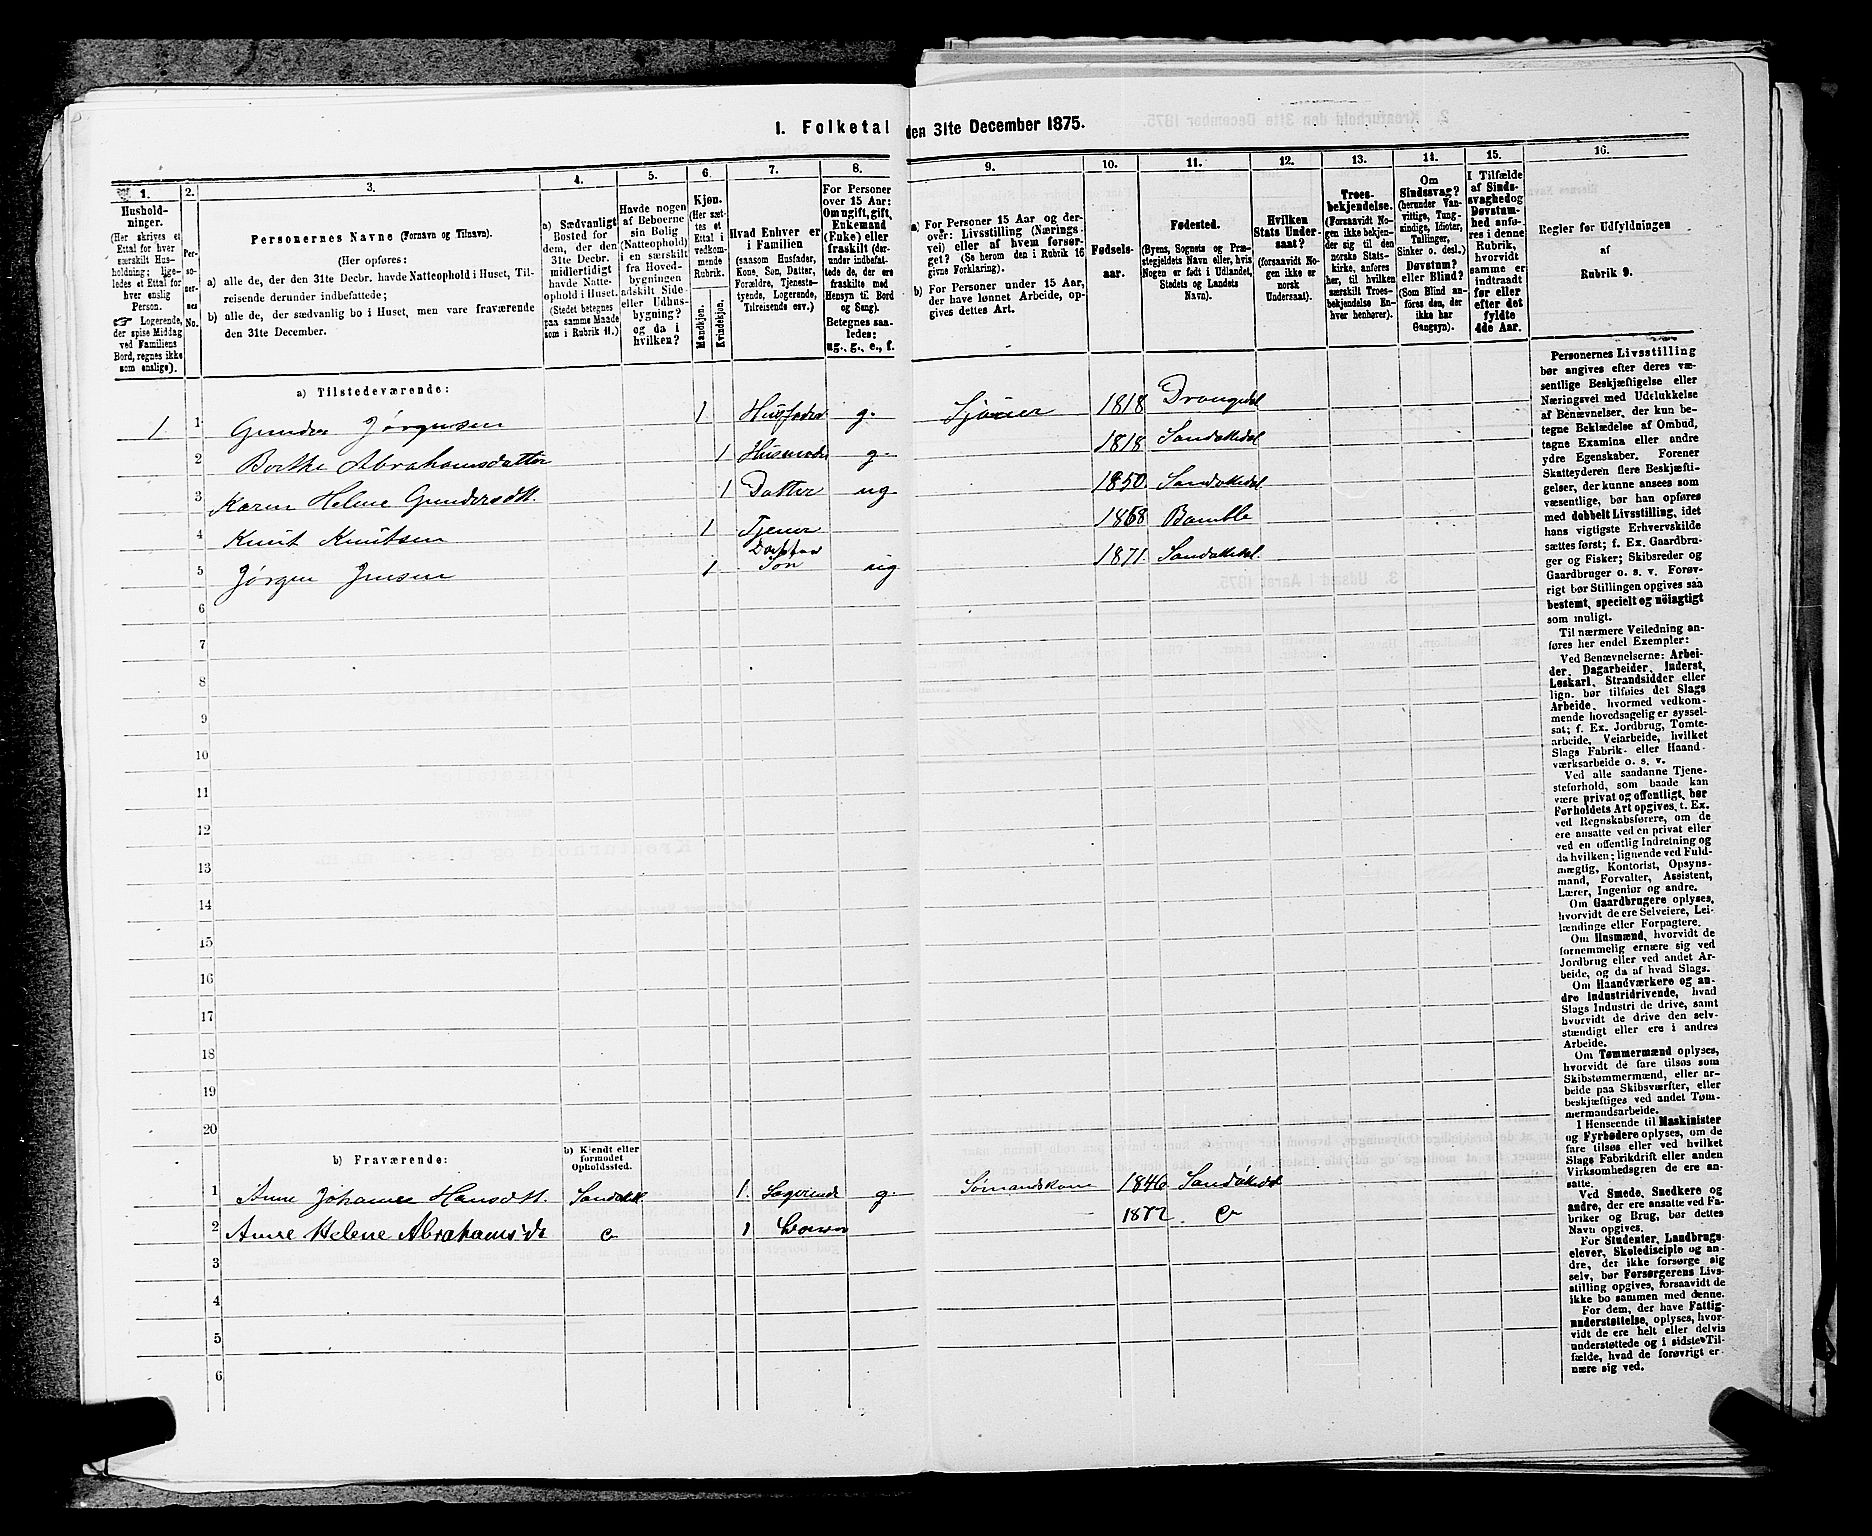 I. Folketal den 31te December 1875.
1. 2. 3. 4. 5. 6. 7. 8. 9. 10. 11. 12. 13. 14. 15. 16.
Hushold-
ninger.
(Her skrives et
Ettal for hver
særskilt Hus-
holdning; lige-
ledes et Ettal for
hver enslig
Person.
☞ Logerende,
der spise Middag
ved Familiens
Bord, regnes ikke
som enslige).
Per-
so-
ner-
nes
No.
Personernes Navne (Fornavn og Tilnavn).
(Her opføres:
a) alle de, der den 31te Decbr. havde Natteophold i Huset, Til-
reisende derunder indbefattede;
b) alle de, der sædvanlig bo i Huset, men vare fraværende
den 31te December.
a) Sædvanligt
Bosted for
dem, der den
31te Decbr.
midlertidigt
havde Natte-
ophold i Huset.
(Stedet betegnes
paa samme Maade
som i Rubrik 11.)
Havde nogen
af Beboerne
sin Bolig
(Natteophold)
i en særskilt
fra Hoved-
bygningen
adskilt Side
eller Udhus-
bygning?
og da i
hvilken?
Kjøn.
(Her sæt-
tes et
Ettal i
vedkom-
mende
Rubrik.
Mandkjøn.
Kvindekjøn.
Hvad Enhver er
i Familien
(saasom Husfader,
Kone, Søn, Datter,
Forældre, Tjeneste-
tyende, Logerende,
Tilreisende osv.)
For Personer
over 15 Aar:
Om ugift, gift,
Enkemand
(Enke) eller
fraskilt (der-
under indbefat-
tede de, der ere
fraskilte med
Hensyn til Bord
og Seng).
Betegnes saa-
ledes:
ug., g., e., f.
a) For Personer 15 Aar og der-
over: Livsstilling (Nærings-
vei) eller af hvem forsør-
get? (Se herom den i Rubrik 16
givne Forklaring).
b) For Personer under 15 Aar,
der have lønnet Arbeide, op-
gives dettes Art.
Fødsels-
aar.
Fødested.
(Byens, Sognets og Præ-
stegjeldets Navn eller, hvis
Nogen er født i Udlandet,
Stedets og Landets
Navn).
Hvilken
Stats Under-
saat?
(forsaavidt No-
gen ikke er
norsk
Undersaat).
Troes-
bekjendelse.
(Forsaavidt No-
gen ikke bekjen-
der sig til den
norske Stats-
kirke, anføres
her, til hvilken
særskilt Troes-
bekjendelse En-
hver henhører).
Om
Sindssvag?
(herunder Van-
vittige, Tung-
sindige, Idioter,
Tullinger,
Sinker o. desl.)
Døvstum?
eller Blind?
(Som Blind an-
føres den, der
ikke har
Gangsyn).
I Tilfælde
af Sinds-
svaghed og
Døvstum-
hed anfø-
res i denne
Rubrik,
hvorvidt
samme er
indtraadt
før eller
efter det
fyldte
4de Aar.
Regler for Udfyldningen
af
Rubrik 9.
a) Tilstedeværende:
1 1 Gunder Jørgensen 1 Husfader g. 1818 Drangedal
2 Berthe Abrahamsdatter 1 Husmoder g. 1818 Sandøkedal
3 Karen Helene Gundersdtt. 1 Datter ug 1850. Sandøkedal
4 Knut Knutsen 1 Tjener 1868 Bamble
5 Jørgen Jensen 1 Datter Søn ug 1871. Sandøkedal
6
7
8
9
10
11
12
13
14
15
16
17
18
19
20
b) Fraværende:
b) Kjendt eller
formodet
Opholdssted.
1 Anne Johanne Hansdtt. 1. Logerende g. Sømandskone 1846 Sandøkedal
2 Anne Helene Abrahamsdt 1
3
4
5
6
Personernes Livsstilling
bør angives efter deres væ-
sentlige Beskjæftigelse eller
Næringsvei med Udelukkelse
af Benævnelser, der kun be-
tegne Beklædelse af Ombud,
tagne Examina eller andre
ydre Egenskaber. Forener
Skatteyderen flere Beskjæfti-
gelser, der kunne ansees som
væsentlige, bør han opføres
med dobbelt Livsstilling, idet
hans vigtigste Erhvervskilde
sættes først; f. Ex. Gaardbru-
ger og Fisker; Skibsreder og
Gaardbruger o. s. v. Forøv-
rigt bør Stillingen opgives saa
bestemt, specielt og nøiagtigt
som muligt.
Til nærmere Veiledning an-
føres her endel Exempler:
Ved Benævnelserne: Arbei-
der, Dagarbeider, Inderst,
Løskarl, Strandsidder eller
lign. bør tilføies det Slags
Arbeide, hvormed vedkom-
mende hovedsagelig er syssel-
sat; f. Ex. Jordbrug, Tomte-
arbeide, Veiarbeide, hvilket
Slags Fabrik- eller Haand-
værksarbeide o. s. v.
Ved alle saadanne Tjene-
steforhold, som baade kan
være privat og offentligt, bør
Forholdets Art opgives, t. Ex.
ved Regnskabsførere, om de
ere ansatte ved en privat eller
ved en offentlig Indretning og
da hvilken; lignende ved Fuld-
mægtig, Kontorist, Opsyns-
mand, Forvalter, Assistent,
Lærer, Ingeniør og andre.
Om Gaardbrugere oplyses,
hvorvidt de ere Selveiere, Lei-
lændinge eller Forpagtere.
Om Husmænd, hvorvidt de
fornemmelig ernære sig ved
Jordbrug eller ved andet Ar-
beide, og da af hvad Slags.
Om Haandværkere og an-
dre Industridrivende, hvad
Slags Industri de drive, samt
hvorvidt de drive den selv-
stændigt eller ere i andres
Arbeide.
Om Tømmermænd oplyses,
hvorvidt de fare tilsøs som
Skibstømmermænd, eller ar-
beide paa Skibsværfter, eller
beskjæftiges ved andet Tøm-
mermandsarbeide.
I Henseende til Maskinister
og Fyrbødere oplyses, om de
fare tilsøs eller ved hvilket
Slags Fabrikdrift eller anden
Virksomhedsgren de ere an-
satte.
Ved Smede, Snedkere og
andre, der ere ansatte ved Fa-
briker og Brug, bør dettes
Navn opgives.
For Studenter, Landbrugs-
elever, Skoledisciple og an-
dre, der ikke forsørge sig
selv, bør Forsørgerens Livs-
stilling opgives, forsaavidt de
ikke bo sammen med denne.
For dem, der have Fattig-
understøttelse, oplyses, hvor-
vidt de ere helt eller delvis
understøttede og i sidste Til-
fælde, hvad de forøvrigt er-
nære sig ved.